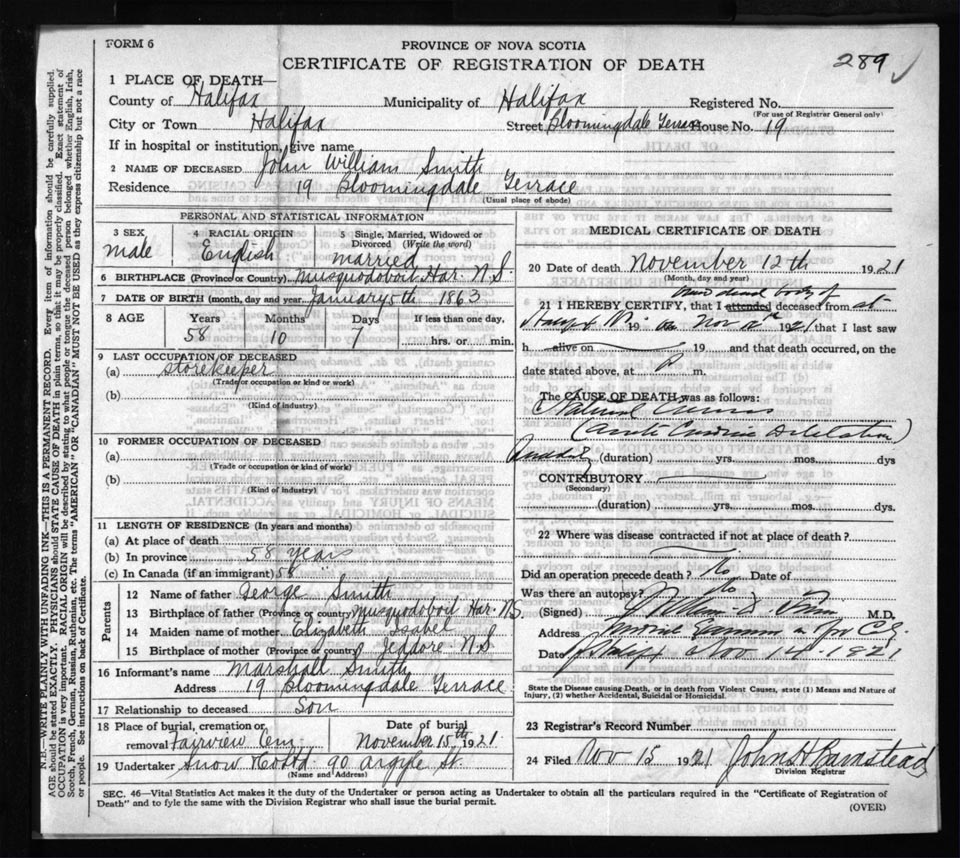 FORM 6
PROVINCE OF NOVA SCOTIA
CERTIFICATE OF REGISTRATION OF DEATH
289 ✓
1 PLACE OF DEATH—
County of Halifax Municipality of Halifax Registered No.
(For use of Registrar General only)
City or Town Halifax Street Bloomingdale Terrace House No. 19
If in hospital or institution, give name
2 NAME OF DECEASED John William Smith
Residence 19 Bloomingdale Terrace
(Usual place of abode)
PERSONAL AND STATISTICAL INFORMATION
3 SEX 4 RACIAL ORIGIN 5 Single, Married, Widowed or Divorced (Write the word)
male English married
6 BIRTHPLACE (Province or Country) Musquodoboit Har. N.S.
7 DATE OF BIRTH (month, day and year January 5th 1863
8 AGE Years Months Days If less than one day,
58 10 7 hrs. or min.
9 LAST OCCUPATION OF DECEASED
(a) storekeeper
(Trade or occupation or kind or work)
(b)
(Kind of industry)
10 FORMER OCCUPATION OF DECEASED
(a)
(Trade or occupation or kind of work)
(b)
(Kind of industry)
11 LENGTH OF RESIDENCE (In years and months)
(a) At place of death
(b) In province 58 years
(c) In Canada (if an immigrant) 58
Parents
12 Name of father George Smith
13 Birthplace of father (Province or country) Musquodoboit Har. N.S.
14 Maiden name of mother Elizabeth Isabel
15 Birthplace of mother (Province or country) Jeddore N.S
16 Informant's name Marshall Smith
Address 19 Bloomingdale Terrace
17 Relationship to deceased Son
18 Place of burial, cremation or removal Fairview Cem. Date of burial November 15th 1921
19 Undertaker Snow & Co Ltd. 90 Argyle St.
(Name and Address)
MEDICAL CERTIFICATE OF DEATH
20 Date of death November 12th 1921
(Month, day and year)
21 I HEREBY CERTIFY, that I attended deceased from
dead body of at
19 Nov 1921 that I last saw
h alive on 19 and that death occurred, on the
date stated above, at P m.
The CAUSE OF DEATH was as follows:
Natural Causes
(Acute Cardiac Dilatation)
(duration) yrs. mos. dys
CONTRIBUTORY
(Secondary)
(duration) yrs. mos. dys.
22 Where was disease contracted if not at place of death?
Did an operation precede death? No Date of
Was there an autopsy? No
(Signed) M.D.
Address
Date Nov 14 1921
State the Disease causing Death, or in death from Violent Causes, state (1) Means and Nature of Injury, (2) whether Accidental, Suicidal or Homicidal.
23 Registrar's Record Number
24 Filed Nov 15 1921 John H Barnstead
Division Registrar
SEC. 46—Vital Statistics Act makes it the duty of the Undertaker or person acting as Undertaker to obtain all the particulars required in the "Certificate of Registration of
Death" and to fyle the same with the Division Registrar who shall issue the burial permit.
(OVER)
N.B.—WRITE PLAINLY WITH UNFADING INK—THIS IS A PERMANENT RECORD. Every item of information should be carefully supplied.
AGE should be stated EXACTLY. PHYSICIANS should STATE CAUSE OF DEATH in plain terms, that it may be properly classified. Exact statement of
OCCUPATION is very important. RACIAL ORIGIN will be described by stating to what people or tongue the deceased person belonged whether English, Irish,
Scotch, French, German, Russian, Ruthenian, etc. The terms "AMERICAN" OR "CANADIAN" MUST NOT BE USED as they express citizenship but not a race
people. See instructions on back of Certificate.